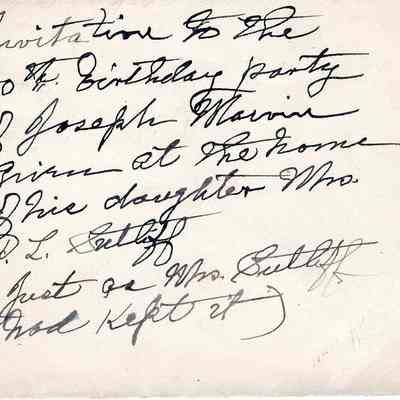 nvitation to the
0th. Birthday party
of Joseph Marvin
Given at the home
of his daughter Mrs.
D. L. Sutliff
Just as Mrs. Sutliff
had Kept it)